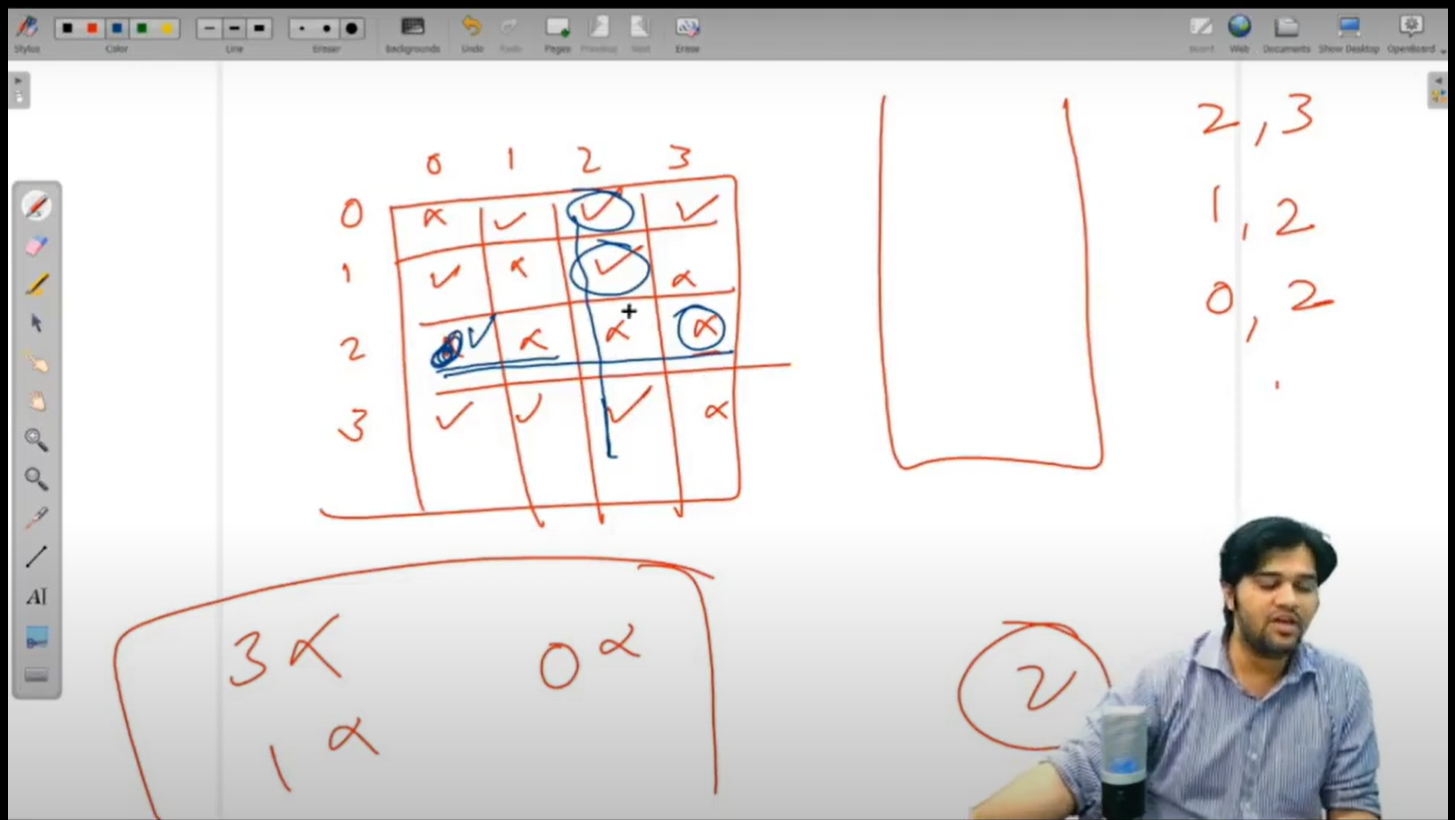 Stylus Color Line Eraser Backgrounds Undo Redo Pages Previous Next Erase Board Web Documents Show Desktop OpenBoard
2, 3
0 1 2 3
0 ✓ ✓ ✓
1, 2
1 ✓ ✓
0, 2
2 ✓
3 ✓ ✓ ✓
AI
3 0
2
1